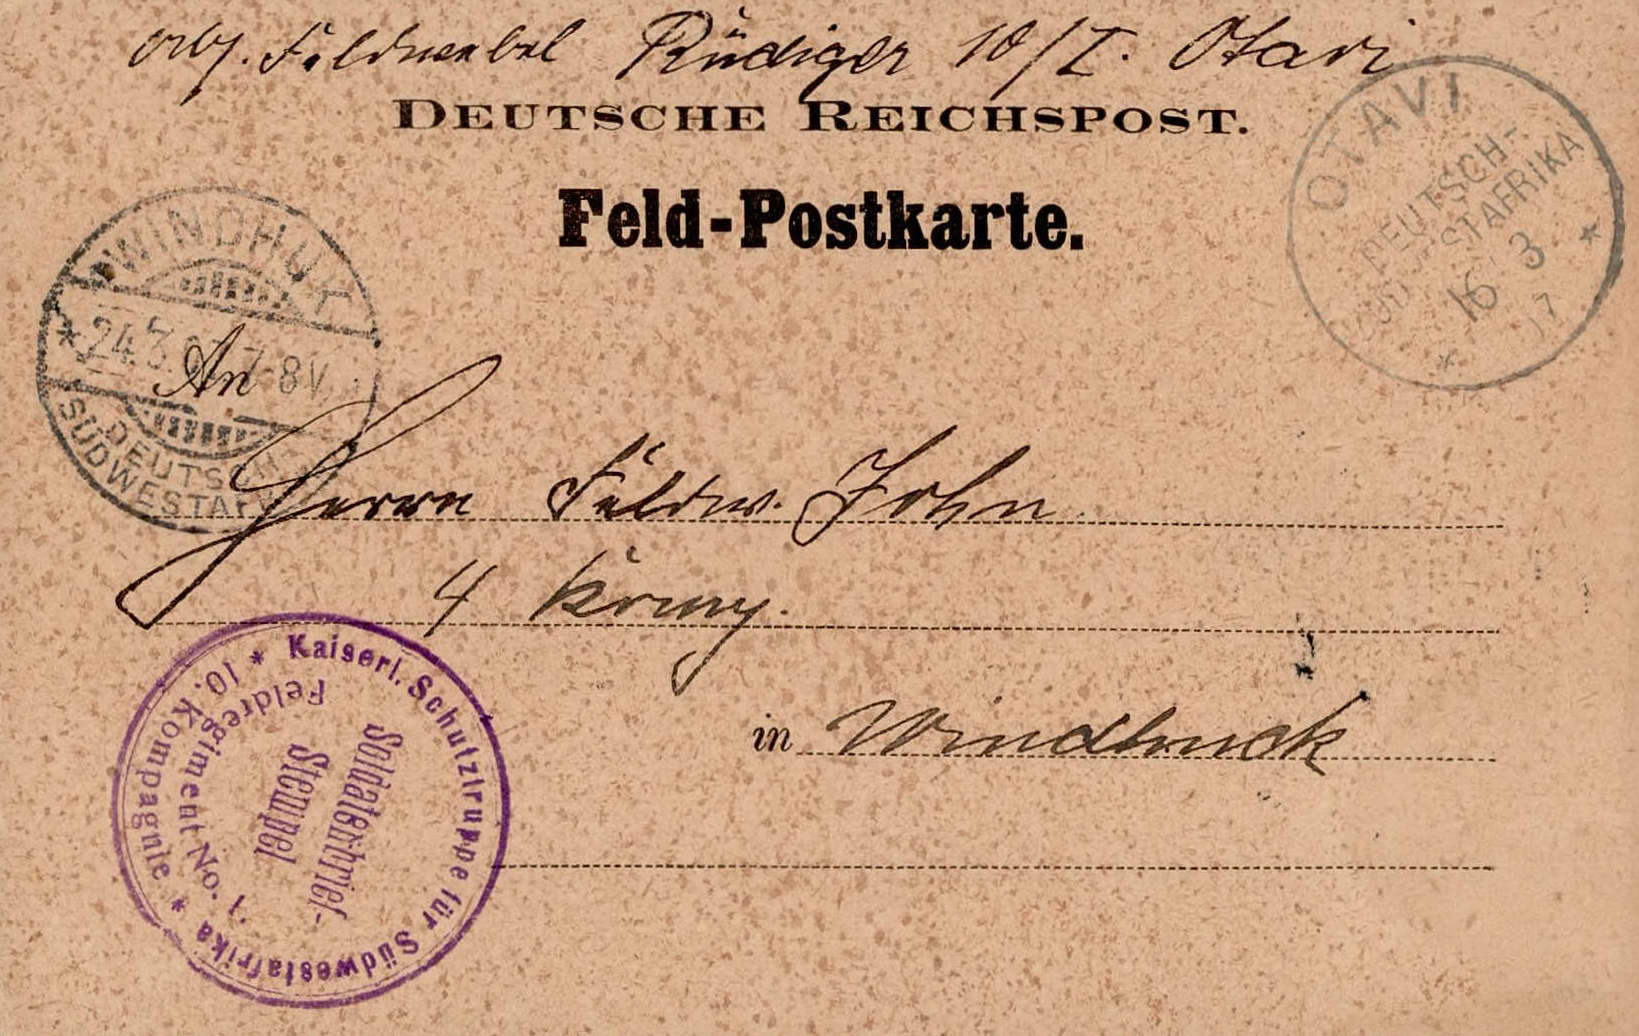 Feldwebel Rüdiger 10/I. Otavi
DEUTSCHE REICHSPOST.
Feld-Postkarte.
OTAVI
DEUTSCH-
SÜDWESTAFRIKA
16 3
07
WINDHUK
* 24.3.07 7-8V.
DEUTSCH
SÜDWESTAFR
An
Herrn Feldw. John
4 Komp.
in Windhuck
* Kaiserl. Schutztruppe für Südwestafrika *
10. Kompagnie
Feldregiment No. 1.
Soldatenbrief-
Stempel